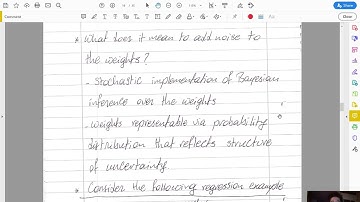 * What does it mean to add noise to
the weights?
- stochastic implementation of Bayesian
inference over the weights
- weights representable via probability
distribution that reflects structure
of uncertainty.
* Consider the following regression example